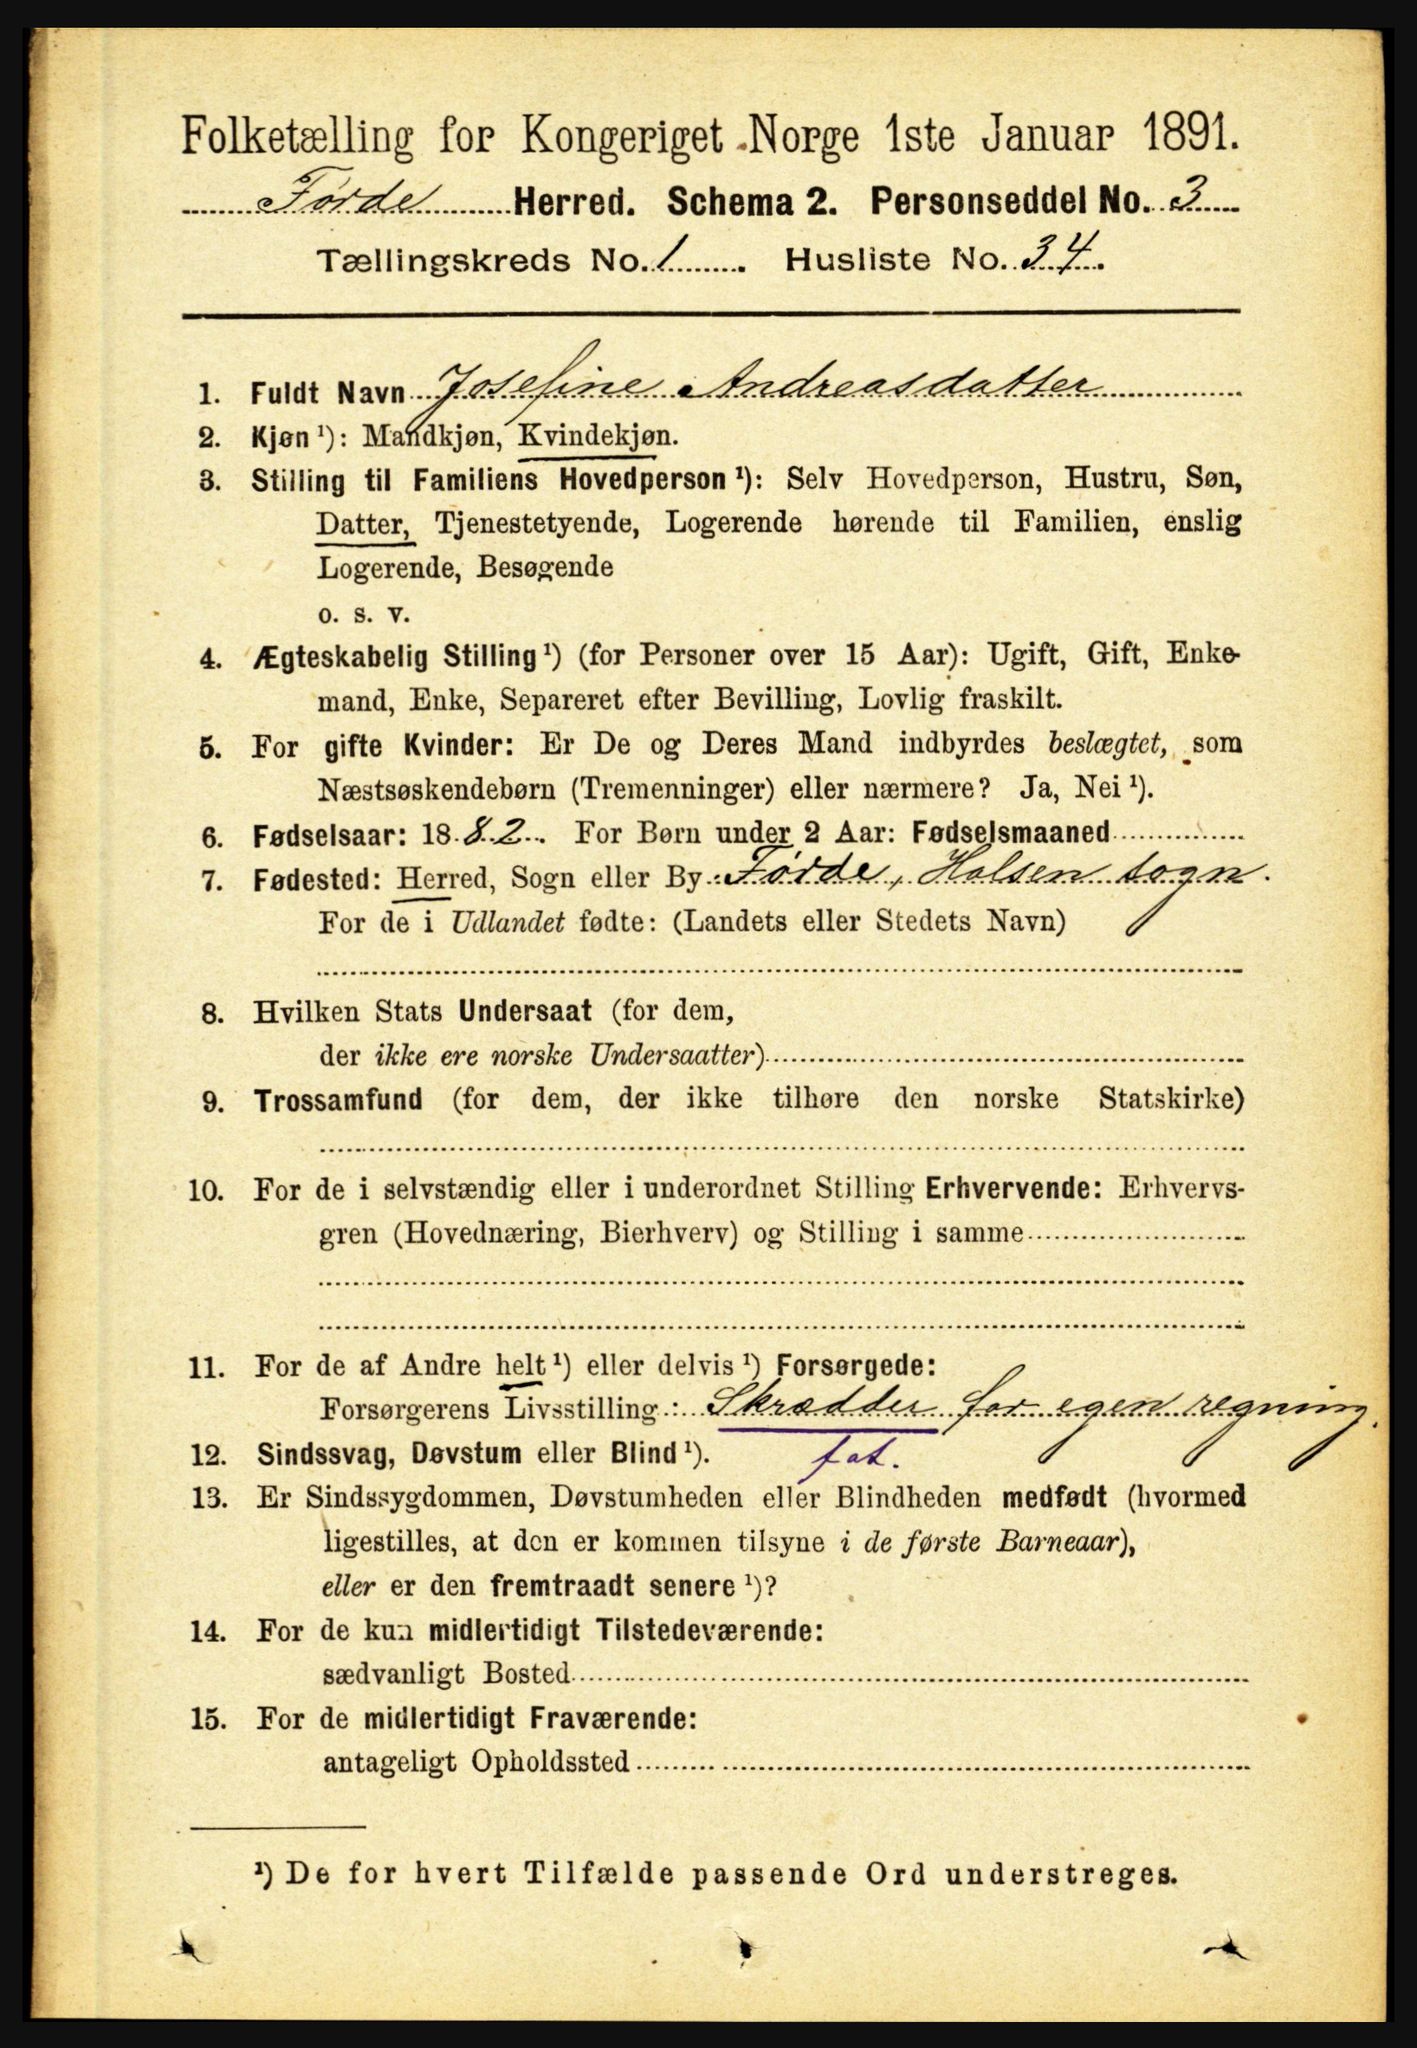 Folketælling for Kongeriget Norge 1ste Januar 1891.
Førde Herred. Schema 2. Personseddel No. 3
Tællingskreds No. 1. Husliste No. 34.
1. Fuldt Navn Josefine Andreasdatter
2. Kjøn ¹): Mandkjøn, Kvindekjøn.
3. Stilling til Familiens Hovedperson ¹): Selv Hovedperson, Hustru, Søn,
Datter, Tjenestetyende, Logerende hørende til Familien, enslig
Logerende, Besøgende
o. s. v.
4. Ægteskabelig Stilling ¹) (for Personer over 15 Aar): Ugift, Gift, Enke-
mand, Enke, Separeret efter Bevilling, Lovlig fraskilt.
5. For gifte Kvinder: Er De og Deres Mand indbyrdes beslægtet, som
Næstsøskendebørn (Tremenninger) eller nærmere? Ja, Nei ¹).
6. Fødselsaar: 1882. For Børn under 2 Aar: Fødselsmaaned
7. Fødested: Herred, Sogn eller By Førde, Holsen sogn.
For de i Udlandet fødte: (Landets eller Stedets Navn)
8. Hvilken Stats Undersaat (for dem,
der ikke ere norske Undersaatter)
9. Trossamfund (for dem, der ikke tilhøre den norske Statskirke)
10. For de i selvstændig eller i underordnet Stilling Erhvervende: Erhvervs-
gren (Hovednæring, Bierhverv) og Stilling i samme
11. For de af Andre helt ¹) eller delvis ¹) Forsørgede:
Forsørgerens Livsstilling: Skrædder for egen regning.
12. Sindssvag, Døvstum eller Blind ¹). fat.
13. Er Sindssygdommen, Døvstumheden eller Blindheden medfødt (hvormed
ligestilles, at den er kommen tilsyne i de første Barneaar),
eller er den fremtraadt senere ¹)?
14. For de kun midlertidigt Tilstedeværende:
sædvanligt Bosted
15. For de midlertidigt Fraværende:
antageligt Opholdssted
¹) De for hvert Tilfælde passende Ord understreges.